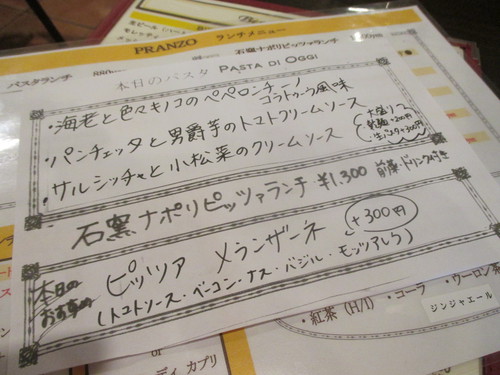 PRANZO ランチメニュー
パスタランチ
石窯ナポリピッツァランチ
本日のパスタ PASTA DI OGGI
・海老と色々キノコのペペロンチーノ
コラトゥーラ風味
・パンチェッタと男爵芋のトマトクリームソース
・サルシッチャと小松菜のクリームソース
+200円
石窯ナポリピッツァランチ ¥1,300 前菜・ドリンク付き
本日の
おすすめ
ピッツァ メランザーネ +300円
(トマトソース・ベーコン・ナス・バジル・モッツァレラ)
・紅茶(H/I) ・コーラ ・ウーロン茶
ジンジャエール
or
ディ カプリ